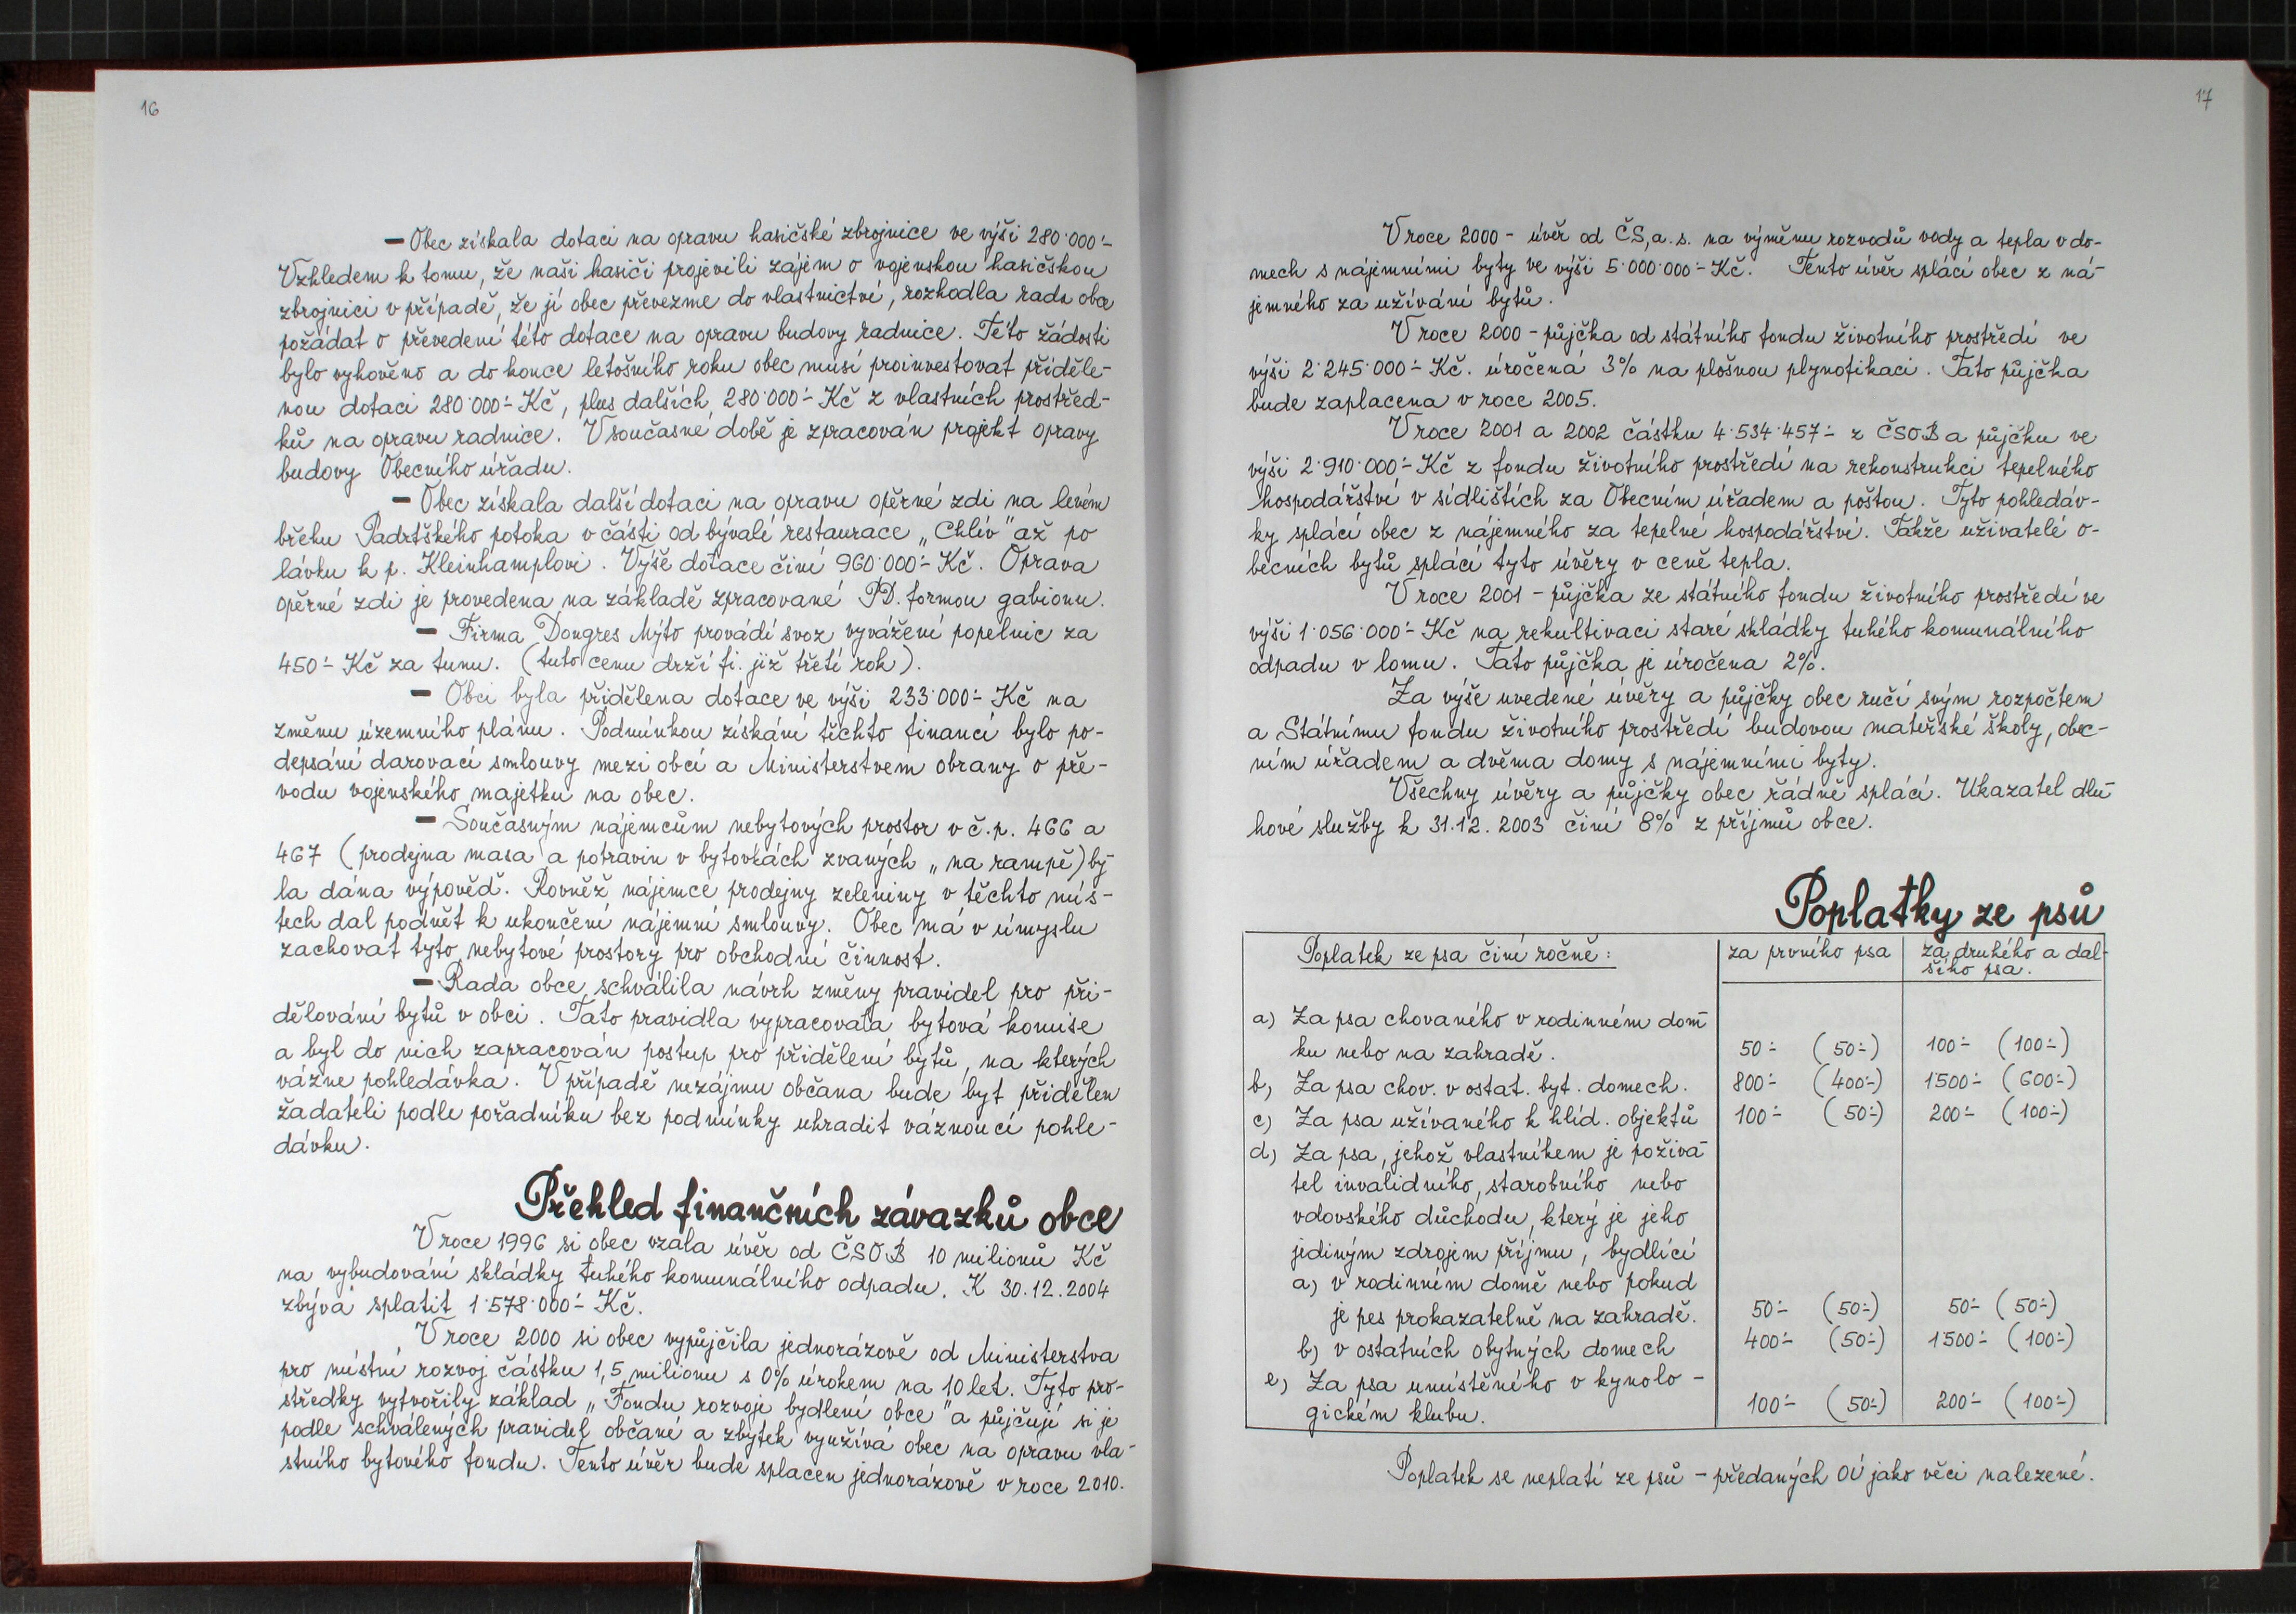 16
— Obec získala dotaci na opravu hasičské zbrojnice ve výši 280˙000˙-
Vzhledem k tomu, že naši hasiči projevili zájem o vojenskou hasičskou
zbrojnici v případě, že jí obec převezme do vlastnictví, rozhodla rada obce
požádat o převedení této dotace na opravu budovy radnice. Této žádosti
bylo vyhověno a do konce letošního roku obec musí proinvestovat přiděle-
nou dotaci 280˙000˙- Kč, plus dalších 280˙000˙- Kč z vlastních prostřed-
ků na opravu radnice. V současné době je zpracován projekt opravy
budovy Obecního úřadu.
— Obec získala další dotaci na opravu opěrné zdi na levém
břehu Padrťského potoka v části od bývalé restaurace „Chlív" až po
lávku k p. Kleinhamplovi. Výše dotace činí 960˙000˙- Kč. Oprava
opěrné zdi je provedena na základě zpracované PD. formou gabionu.
— Firma Dongres Mýto provádí svoz vyvážení popelnic za
450˙- Kč za tunu. (tuto cenu drží fi. již třetí rok).
— Obci byla přidělena dotace ve výši 233˙000˙- Kč na
změnu územního plánu. Podmínkou získání těchto financí bylo po-
depsání darovací smlouvy mezi obcí a Ministerstvem obrany o pře-
vodu vojenského majetku na obec.
— Současným nájemcům nebytových prostor v č.p. 466 a
467 (prodejna masa a potravin v bytovkách zvaných „na rampě) by-
la dána výpověď. Rovněž nájemce prodejny zeleniny v těchto mís-
tech dal podnět k ukončení nájemní smlouvy. Obec má v úmyslu
zachovat tyto nebytové prostory pro obchodní činnost.
— Rada obce schválila návrh změny pravidel pro při-
dělování bytů v obci. Tato pravidla vypracovala bytová komise
a byl do nich zapracován postup pro přidělení bytů, na kterých
vázne pohledávka. V případě nezájmu občana bude byt přidělen
žadateli podle pořadníku bez podmínky uhradit váznoucí pohle-
dávku.
Přehled finančních závazků obce
V roce 1996 si obec vzala úvěr od ČSOB 10 milionů Kč
na vybudování skládky tuhého komunálního odpadu. K 30.12.2004
zbývá splatit 1˙578˙000˙- Kč.
V roce 2000 si obec vypůjčila jednorázově od Ministerstva
pro místní rozvoj částku 1,5 milionu s 0% úrokem na 10 let. Tyto pro-
středky vytvořily základ „Fondu rozvoje bydlení obce" a půjčují si je
podle schválených pravidel občané a zbytek využívá obec na opravu vla-
stního bytového fondu. Tento úvěr bude splacen jednorázově v roce 2010.
17
V roce 2000 - úvěr od ČS, a. s. na výměnu rozvodů vody a tepla v do-
mech s nájemními byty ve výši 5˙000˙000˙- Kč. Tento úvěr splácí obec z ná-
jemného za užívání bytů.
V roce 2000 - půjčka od státního fondu životního prostředí ve
výši 2˙245˙000˙- Kč. úročená 3% na plošnou plynofikaci. Tato půjčka
bude zaplacena v roce 2005.
V roce 2001 a 2002 částku 4˙534˙457˙- z ČSOB a půjčku ve
výši 2˙910˙000˙- Kč z fondu životního prostředí na rekonstrukci tepelného
hospodářství v sídlištích za Obecním úřadem a poštou. Tyto pohledáv-
ky splácí obec z nájemného za tepelné hospodářství. Takže uživatelé o-
becních bytů splácí tyto úvěry v ceně tepla.
V roce 2001 - půjčka ze státního fondu životního prostředí ve
výši 1˙056˙000˙- Kč na rekultivaci staré skládky tuhého komunálního
odpadu v lomu. Tato půjčka je úročena 2%.
Za výše uvedené úvěry a půjčky obec ručí svým rozpočtem
a Státnímu fondu životního prostředí budovou mateřské školy, obec-
ním úřadem a dvěma domy s nájemními byty.
Všechny úvěry a půjčky obec řádně splácí. Ukazatel dlu-
hové služby k 31.12.2003 činí 8% z příjmů obce.
Poplatky ze psů
Poplatek ze psa činí ročně: za prvního psa za druhého a dal-
šího psa.
a) Za psa chovaného v rodinném dom-
ku nebo na zahradě. 50˙- (50˙-) 100˙- (100˙-)
b) Za psa chov. v ostat. byt. domech. 800˙- (400˙-) 1˙500˙- (600˙-)
c) Za psa užívaného k hlíd. objektů 100˙- (50˙-) 200˙- (100˙-)
d) Za psa, jehož vlastníkem je poživa-
tel invalidního, starobního nebo
vdovského důchodu, který je jeho
jediným zdrojem příjmu, bydlící
a) v rodinném domě nebo pokud
je pes prokazatelně na zahradě. 50˙- (50˙-) 50˙- (50˙-)
b) v ostatních obytných domech 400˙- (50˙-) 1˙500˙- (100˙-)
e) Za psa umístěného v kynolo-
gickém klubu. 100˙- (50˙-) 200˙- (100˙-)
Poplatek se neplatí ze psů - předaných OÚ jako věci nalezené.